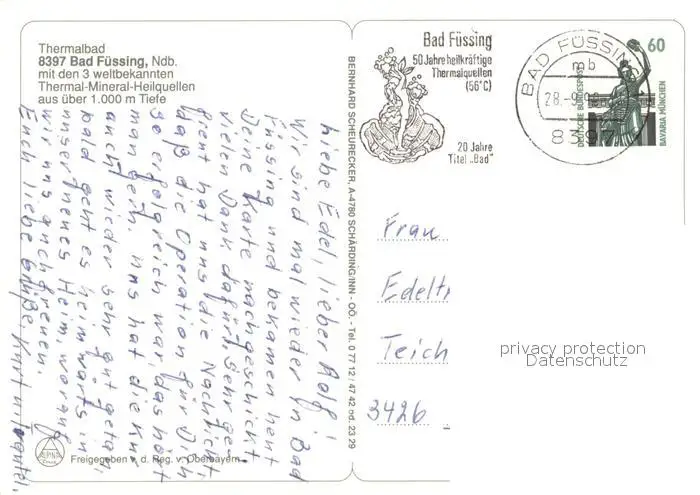 Thermalbad
8397 Bad Füssing, Ndb.
mit den 3 weltbekannten
Thermal-Mineral-Heilquellen
aus über 1.000 m Tiefe
Liebe Edel, lieber Rolf!
Wir sind mal wieder in Bad
Füssing und bekamen heut
Deine Karte nachgeschickt.
Vielen Dank dafür. Sehr ge-
freut hat uns die Nachricht,
daß die Operation für Dich
so erfolgreich war, das hört
man gern. Uns hat die Kur
auch wieder sehr gut getan,
bald geht es heimwärts in
unser neues Heim, worauf
wir uns auch freuen.
Euch liebe Grüße, Kurt u.
Freigegeben v. d. Reg. v. Oberbayern
ALPINA
BERNHARD SCHEURECKER, A-4780 SCHÄRDING/INN - OÖ. - Tel. 0 77 12 / 47 42 od. 23 29
Bad Füssing
50 Jahre heilkräftige
Thermalquellen
(56°C)
20 Jahre
Titel „Bad"
BAD FÜSSING
mb
28.-9.90
8397
60
DEUTSCHE BUNDESPOST
BAVARIA MÜNCHEN
Frau
Edeltr
Teich
3426
privacy protection
Datenschutz